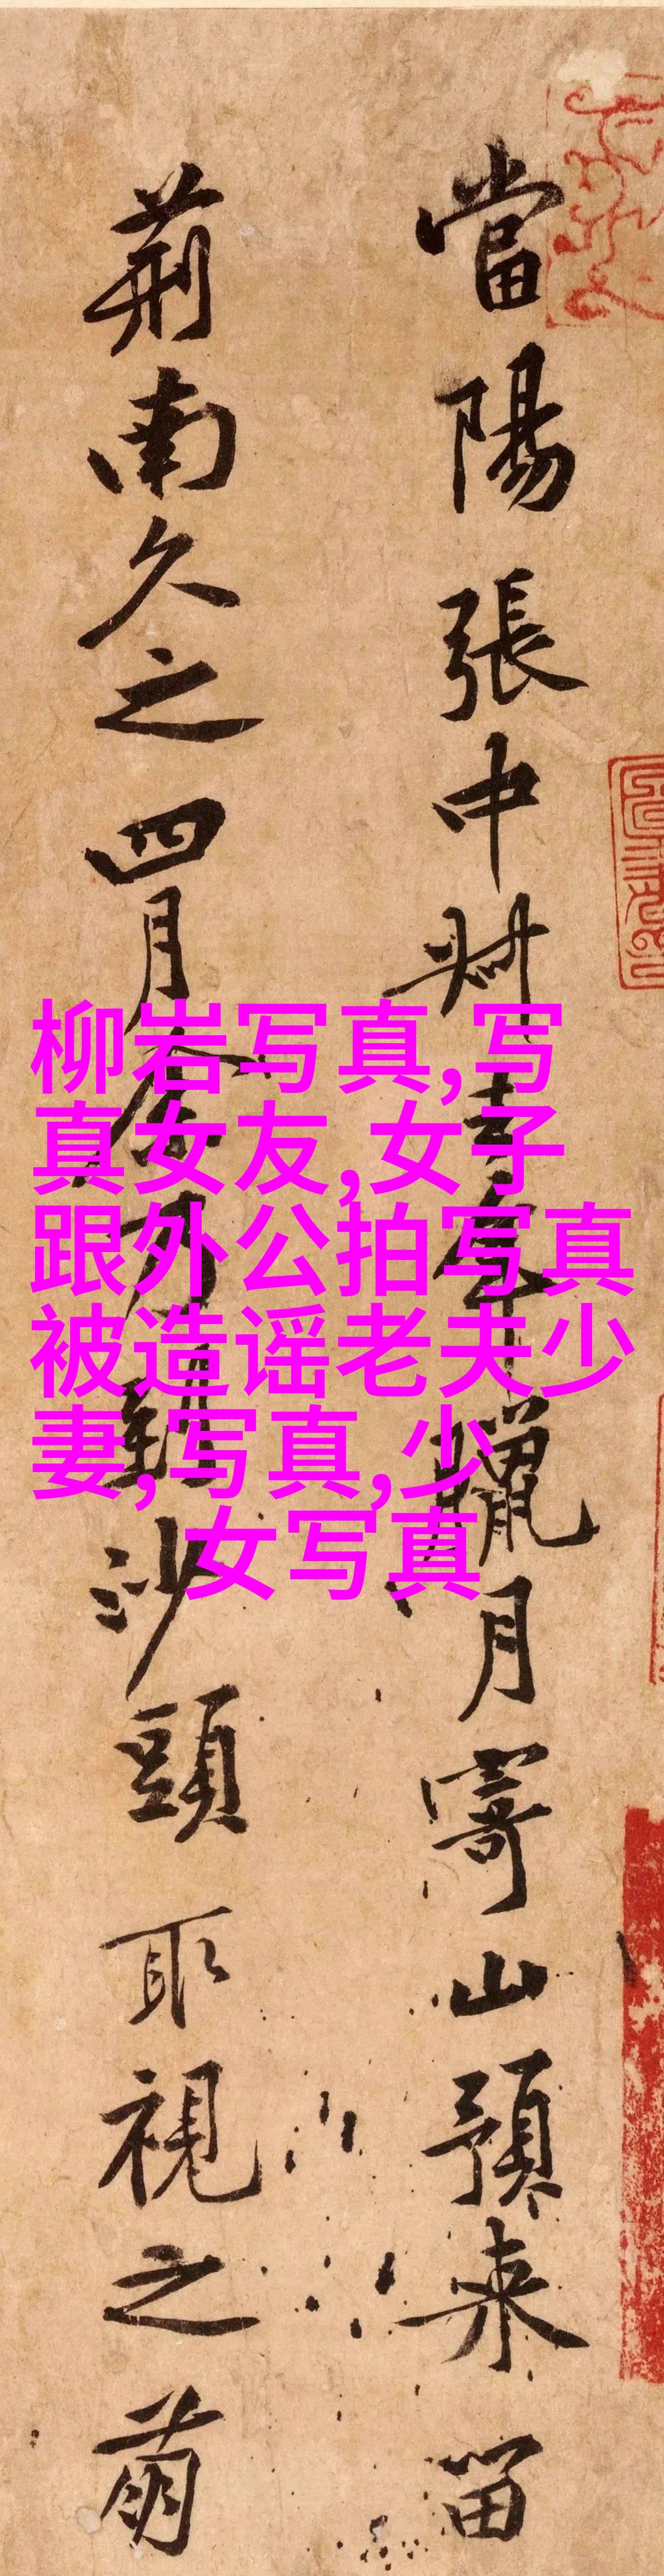 當陽張中叔臘月寄山預来留
荊南久之四月沙頭取視之萌
柳岩写真,写
真女友,女子
跟外公拍写真
被造谣老夫少
妻,写真,少
女写真